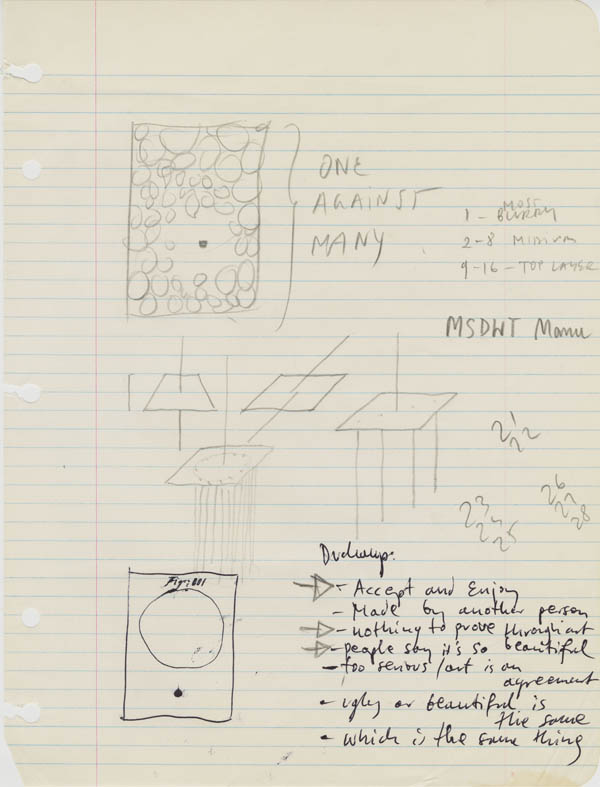 ONE
AGAINST
MANY
1 - MOST BLURRY
2-8 MEDIUM
9-16 - TOP LAYER
MSDWT Manu
2 1
2 2
2 3
2 4
2 5
2 6
2 7
2 8
Fig: 001
Duchamp:
- Accept and Enjoy
- Made by another person
- nothing to prove through art
- people say it's so beautiful
- too serious / art is an
agreement
• ugly or beautiful is
the same
• which is the same thing